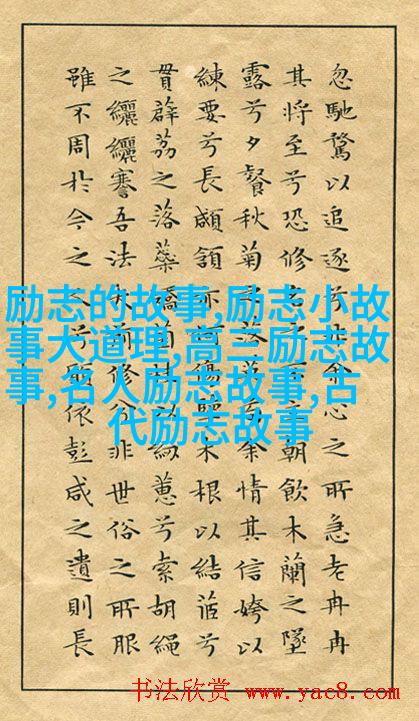 忽馳騖以追逐兮非余心之所急老冉冉
其將至兮恐修名之立朝飲木蘭之墜
露兮夕餐秋菊之落英余情其信姱以
練要兮長顑頷亦傷擥木根以結茝兮
貫薜荔之落蘂矯菌桂以紉蕙兮索胡繩
之纚纚謇吾法夫前修兮非世俗之所服
雖不周於今之人兮願依彭咸之遺則長
励志的故事,励志小故
事大道理,高三励志故
事,名人励志故事,古
代励志故事
书法欣赏 www.yac8.com